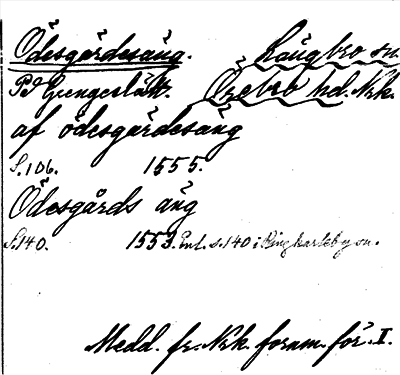 Ödesgärdesäng. Långbro sn.
På Grengeslätt. Örebro hd. Nrk.
af ödesgärdesäng
S. 106. 1555.
Ödesgårds äng
S. 140. 1553. Enl. s. 140 i Ringkarleby sn.
Medd. fr. Nrk. fornm. för. I.